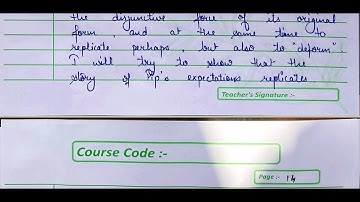 the disjunctive force of its original
form and at the same time to
replicate, perhaps, but also to "deform".
I will try to show that the
story of Pip's expectations replicates
Teacher's Signature :-
Course Code :-
Page :- 14